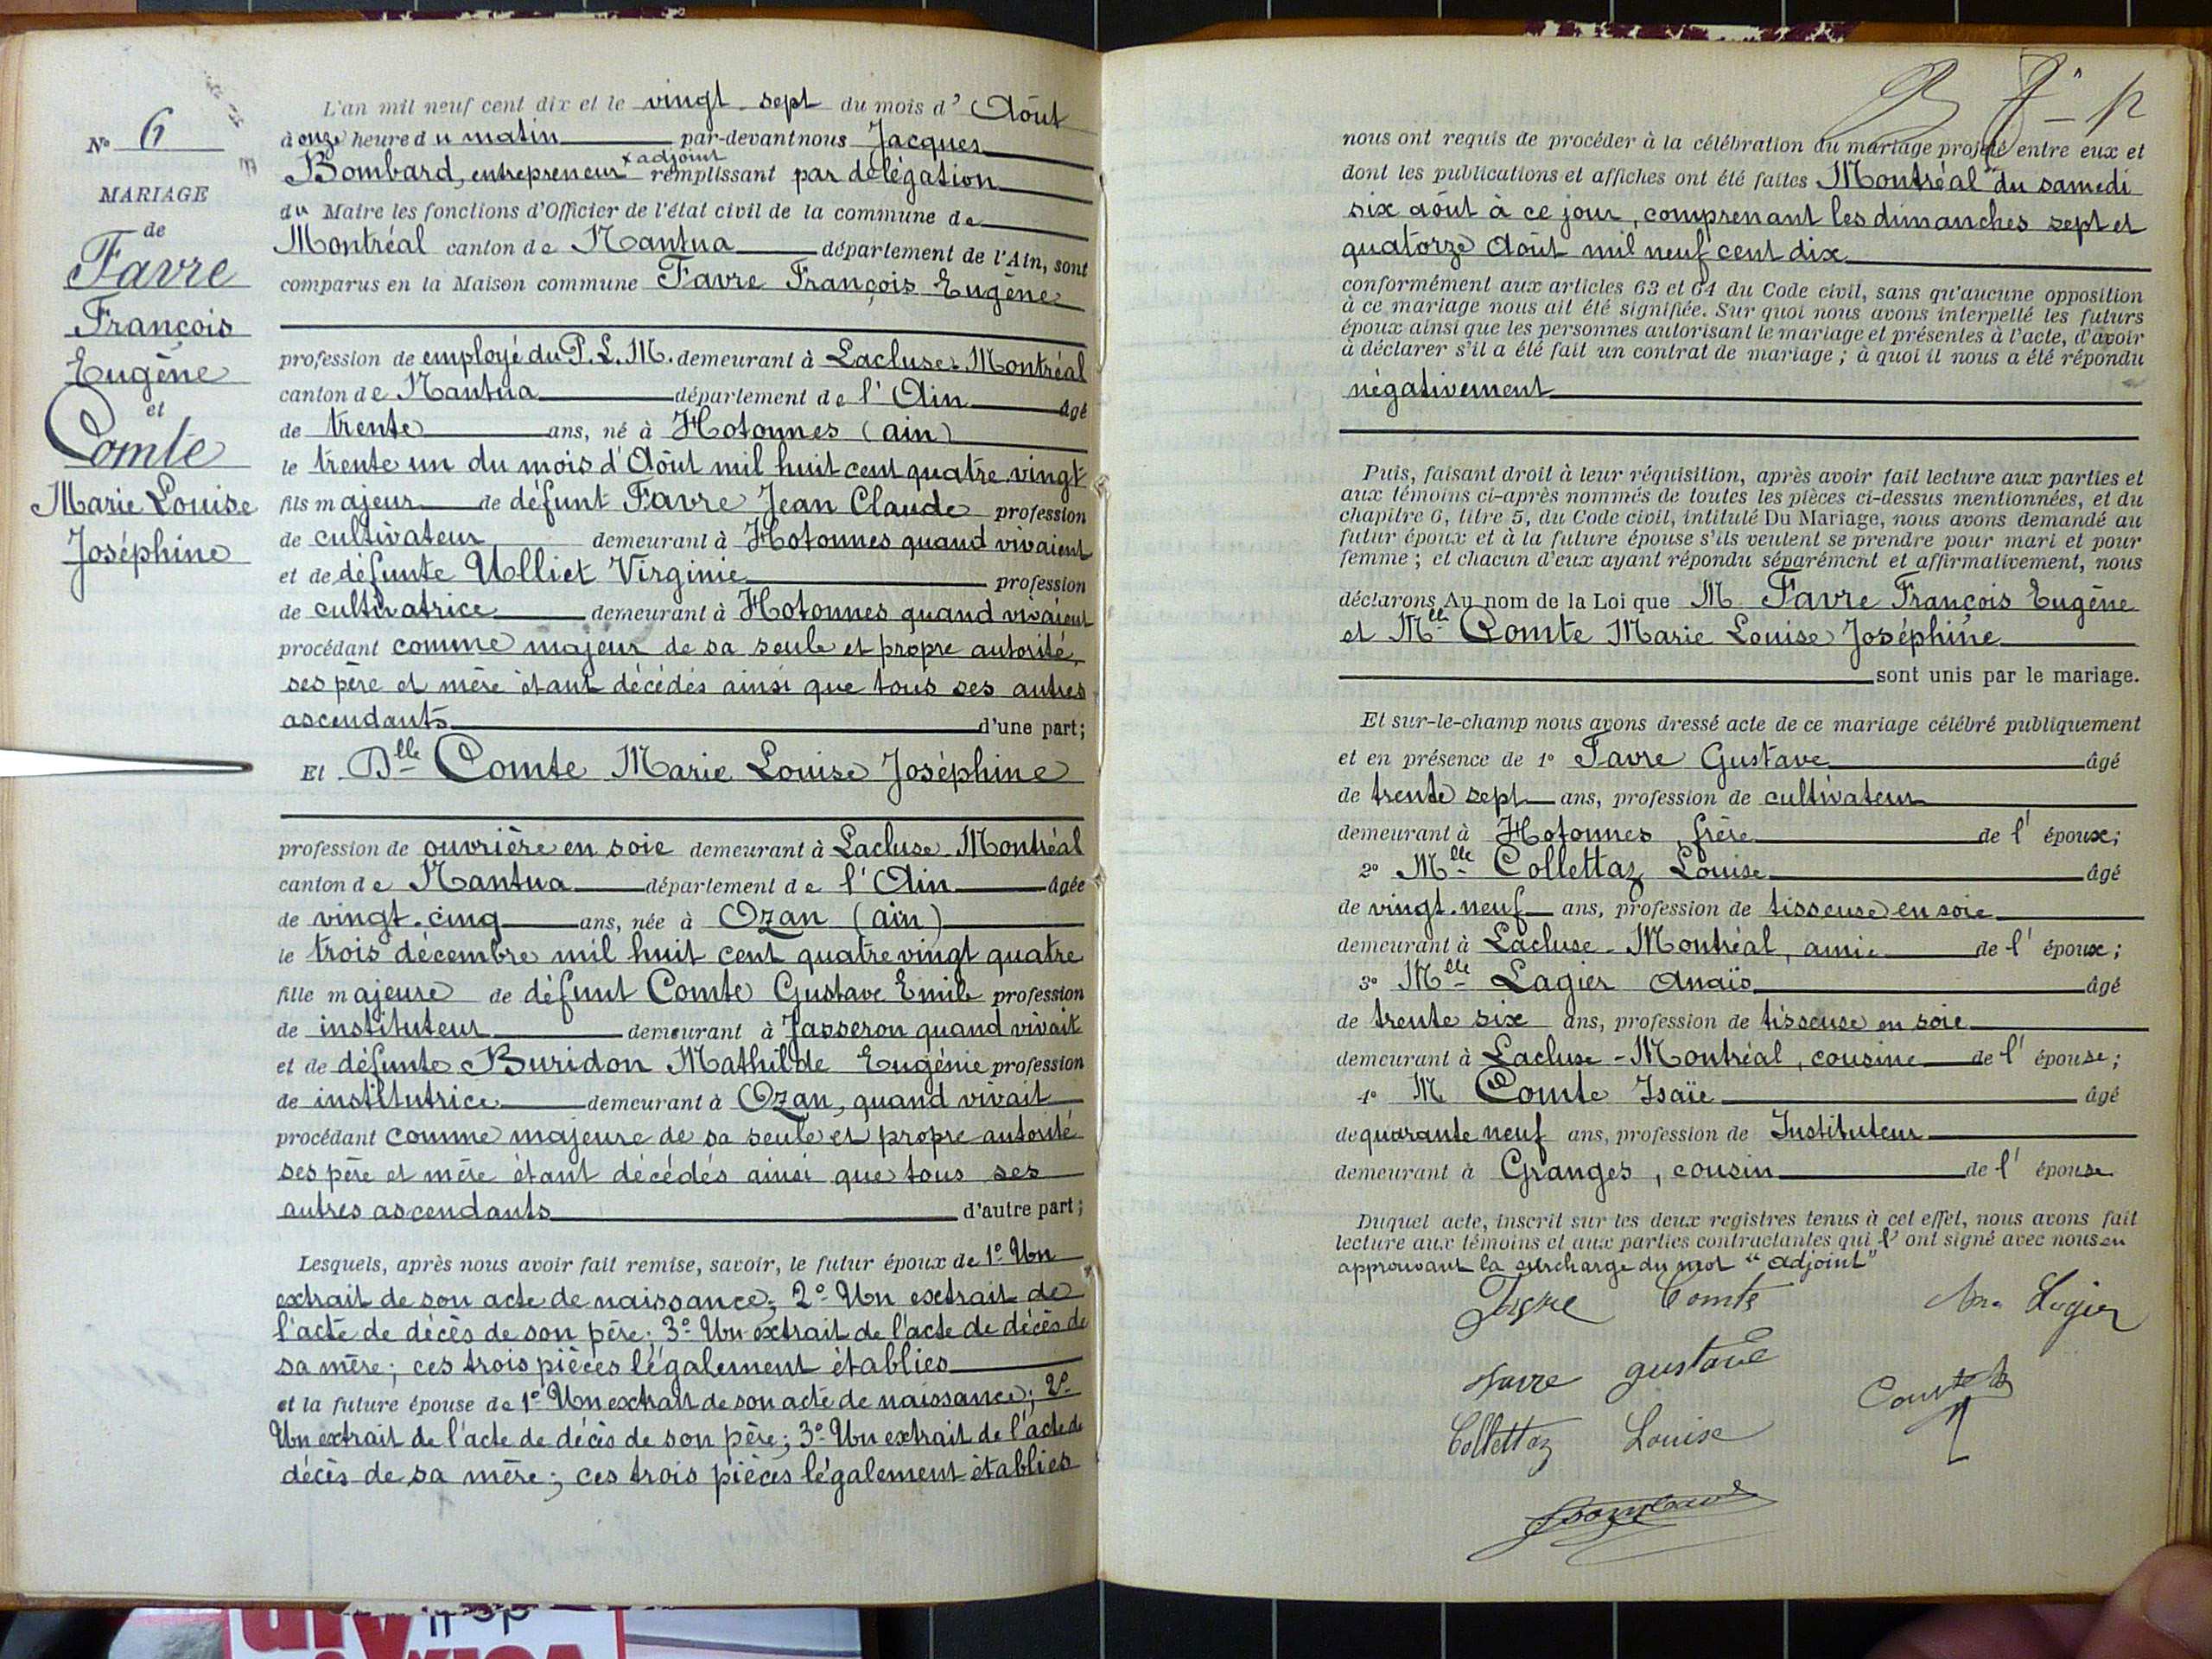 N° 6
MARIAGE
de
Favre
François
Eugène
et
Comte
Marie Louise
Joséphine
L'an mil neuf cent dix et le vingt-sept du mois d'Août
à onze heure du matin par-devant nous Jacques
Bombard, entrepreneur × adjoint remplissant par délégation
du Maire les fonctions d'Officier de l'état civil de la commune de
Montréal canton de Nantua département de l'Ain, sont
comparus en la Maison commune Favre François Eugène
profession de employé du P. L. M. demeurant à Lacluse-Montréal
canton de Nantua département de l'Ain âgé
de trente ans, né à Hotonnes (ain)
le trente un du mois d'Août mil huit cent quatre-vingt
fils majeur de défunt Favre Jean Claude profession
de cultivateur demeurant à Hotonnes quand vivaient
et de défunte Ulliet Virginie profession
de cultivatrice demeurant à Hotonnes quand vivaient
procédant comme majeur de sa seule et propre autorité,
ses père et mère étant décédés ainsi que tous ses autres
ascendants d'une part;
Et Dlle Comte Marie Louise Joséphine
profession de ouvrière en soie demeurant à Lacluse-Montréal
canton de Nantua département de l'Ain âgée
de vingt-cinq ans, née à Ozan (ain)
le trois décembre mil huit cent quatre vingt quatre
fille majeure de défunt Comte Gustave Emile profession
de instituteur demeurant à Jasseron quand vivait
et de défunte Buridon Mathilde Eugénie profession
de institutrice demeurant à Ozan, quand vivait
procédant comme majeure de sa seule et propre autorité
ses père et mère étant décédés ainsi que tous ses
autres ascendants d'autre part;
Lesquels, après nous avoir fait remise, savoir, le futur époux de 1° Un
extrait de son acte de naissance; 2° Un extrait de
l'acte de décès de son père; 3° Un extrait de l'acte de décès de
sa mère; ces trois pièces légalement établies
et la future épouse de 1° Un extrait de son acte de naissance; 2°
Un extrait de l'acte de décès de son père; 3° Un extrait de l'acte de
décès de sa mère; ces trois pièces légalement établies
nous ont requis de procéder à la célébration du mariage projeté entre eux et
dont les publications et affiches ont été faites Montréal du samedi
six août à ce jour, comprenant les dimanches sept et
quatorze Août mil neuf cent dix
conformément aux articles 63 et 64 du Code civil, sans qu'aucune opposition
à ce mariage nous ait été signifiée. Sur quoi nous avons interpellé les futurs
époux ainsi que les personnes autorisant le mariage et présentes à l'acte, d'avoir
à déclarer s'il a été fait un contrat de mariage; à quoi il nous a été répondu
négativement
Puis, faisant droit à leur réquisition, après avoir fait lecture aux parties et
aux témoins ci-après nommés de toutes les pièces ci-dessus mentionnées, et du
chapitre 6, titre 5, du Code civil, intitulé Du Mariage, nous avons demandé au
futur époux et à la future épouse s'ils veulent se prendre pour mari et pour
femme; et chacun d'eux ayant répondu séparément et affirmativement, nous
déclarons Au nom de la Loi que M. Favre François Eugène
et Mlle Comte Marie Louise Joséphine
sont unis par le mariage.
Et sur-le-champ nous avons dressé acte de ce mariage célébré publiquement
et en présence de 1° Favre Gustave âgé
de trente sept ans, profession de cultivateur
demeurant à Hotonnes frère de l'époux;
2° Mlle Collettaz Louise âgé
de vingt-neuf ans, profession de tisseuse en soie
demeurant à Lacluse-Montréal, amie de l'époux;
3° Mlle Lagier Anaïs âgé
de trente six ans, profession de tisseuse en soie
demeurant à Lacluse-Montréal, cousine de l'épouse;
4° M. Comte Isaïe âgé
de quarante neuf ans, profession de Instituteur
demeurant à Granges, cousin de l'épouse
Duquel acte, inscrit sur les deux registres tenus à cet effet, nous avons fait
lecture aux témoins et aux parties contractantes qui l'ont signé avec nous en
approuvant la surcharge du mot "adjoint"
Favre Comte Lagier
Favre gustave
Comte
Collettaz Louise
Bombard